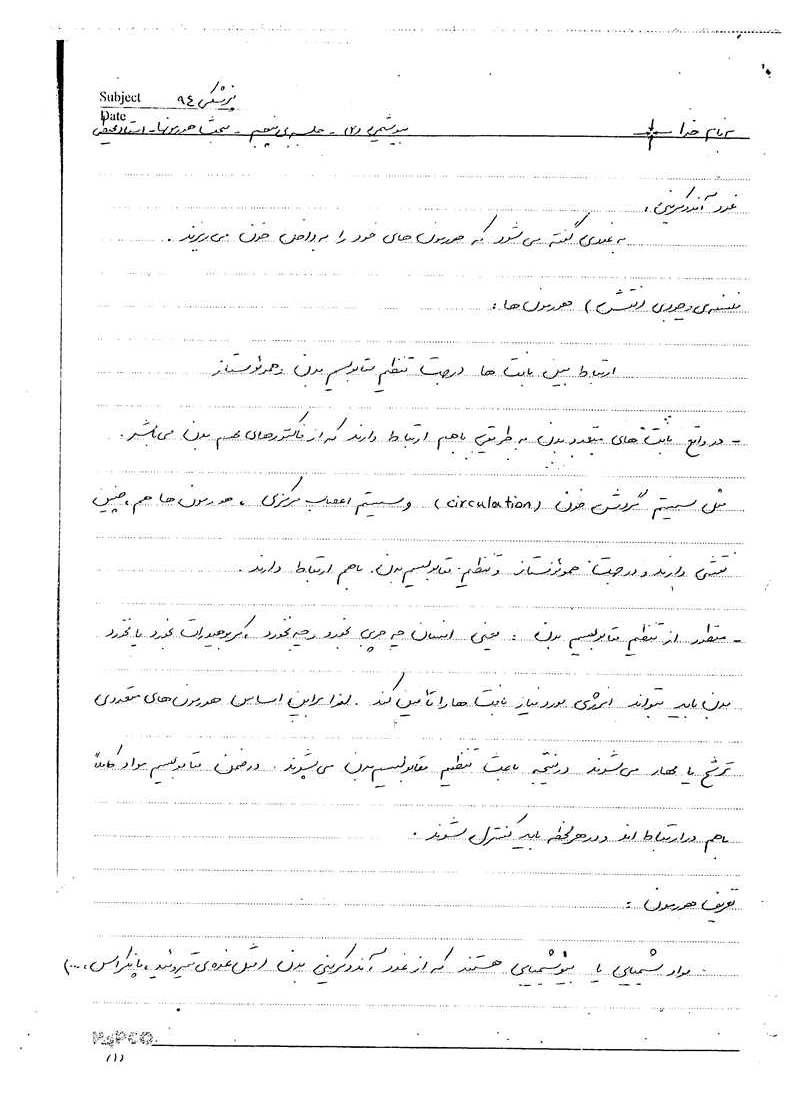 Subject پزشکی ٩٤
Date بیوشیمی (٢) - جلسه‌ی پنجم - مبحث هورمونها - استاد
به نام خدا
غدد آندوکرینی:
به غددی گفته می شود که هورمون های خود را به داخل خون می ریزند.
فلسفه‌ی وجودی (نقش) هورمون ها:
ارتباط بین بافت ها درجهت تنظیم متابولیسم بدن و هموئوستاز
- در واقع بافت های متعدد بدن به طریقی باهم ارتباط دارند که از فاکتورهای مهم بدن می باشد.
مثل سیستم گردش خون (circulation) و سیستم اعصاب مرکزی، هورمون ها هم چنین
نقشی دارند و درجهت هموئوستاز و تنظیم متابولیسم بدن، باهم ارتباط دارند.
- منظور از تنظیم متابولیسم بدن: یعنی انسان چه چربی بخورد و چه نخورد، کربوهیدرات بخورد یا نخورد
بدن باید بتواند انرژی مورد نیاز بافت ها را تأمین کند. لذا براین اساس هورمون های متعددی
ترشح یا مهار می شوند درنتیجه باعث تنظیم متابولیسم بدن می شوند. درضمن متابولیسم مواد کاملاً
باهم در ارتباط اند و در هر لحظه باید کنترل شوند.
تعریف هورمون:
مواد شیمیایی یا بیوشیمیایی هستند که از غدد آندوکرینی بدن (مثل غده‌ی تیروئید، پانکراس، ...)
MaPCO
(١)